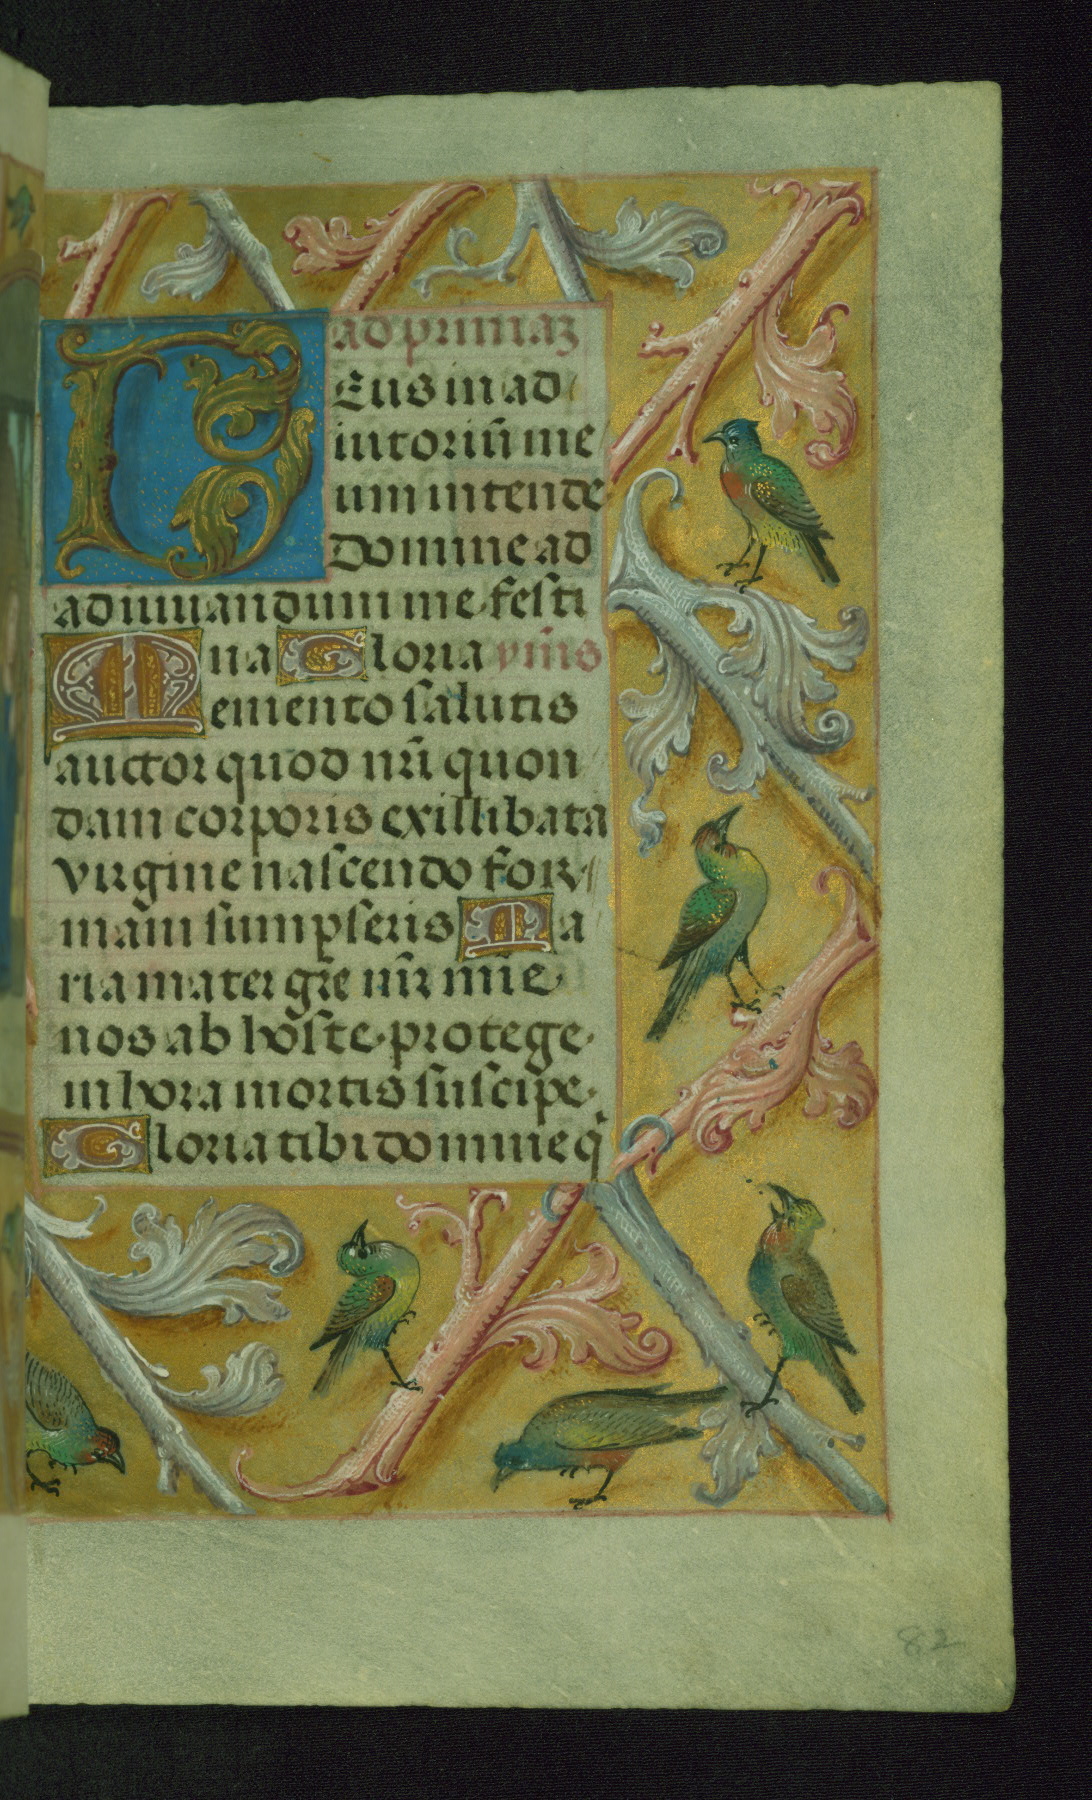 ad primaz
Deus in ad
iutoriũ me
um intende
Domine ad
adiuuandum me festi
na Gloria ym̃s
Memento salutis
auctor quod nr̃i quon
dam corporis ex illibata
virgine nascendo for
mam sumpseris Ma
ria mater gr̃e mr̃ mie
nos ab hoste protege
in hora mortis suscipe
Gloria tibi domine q
82